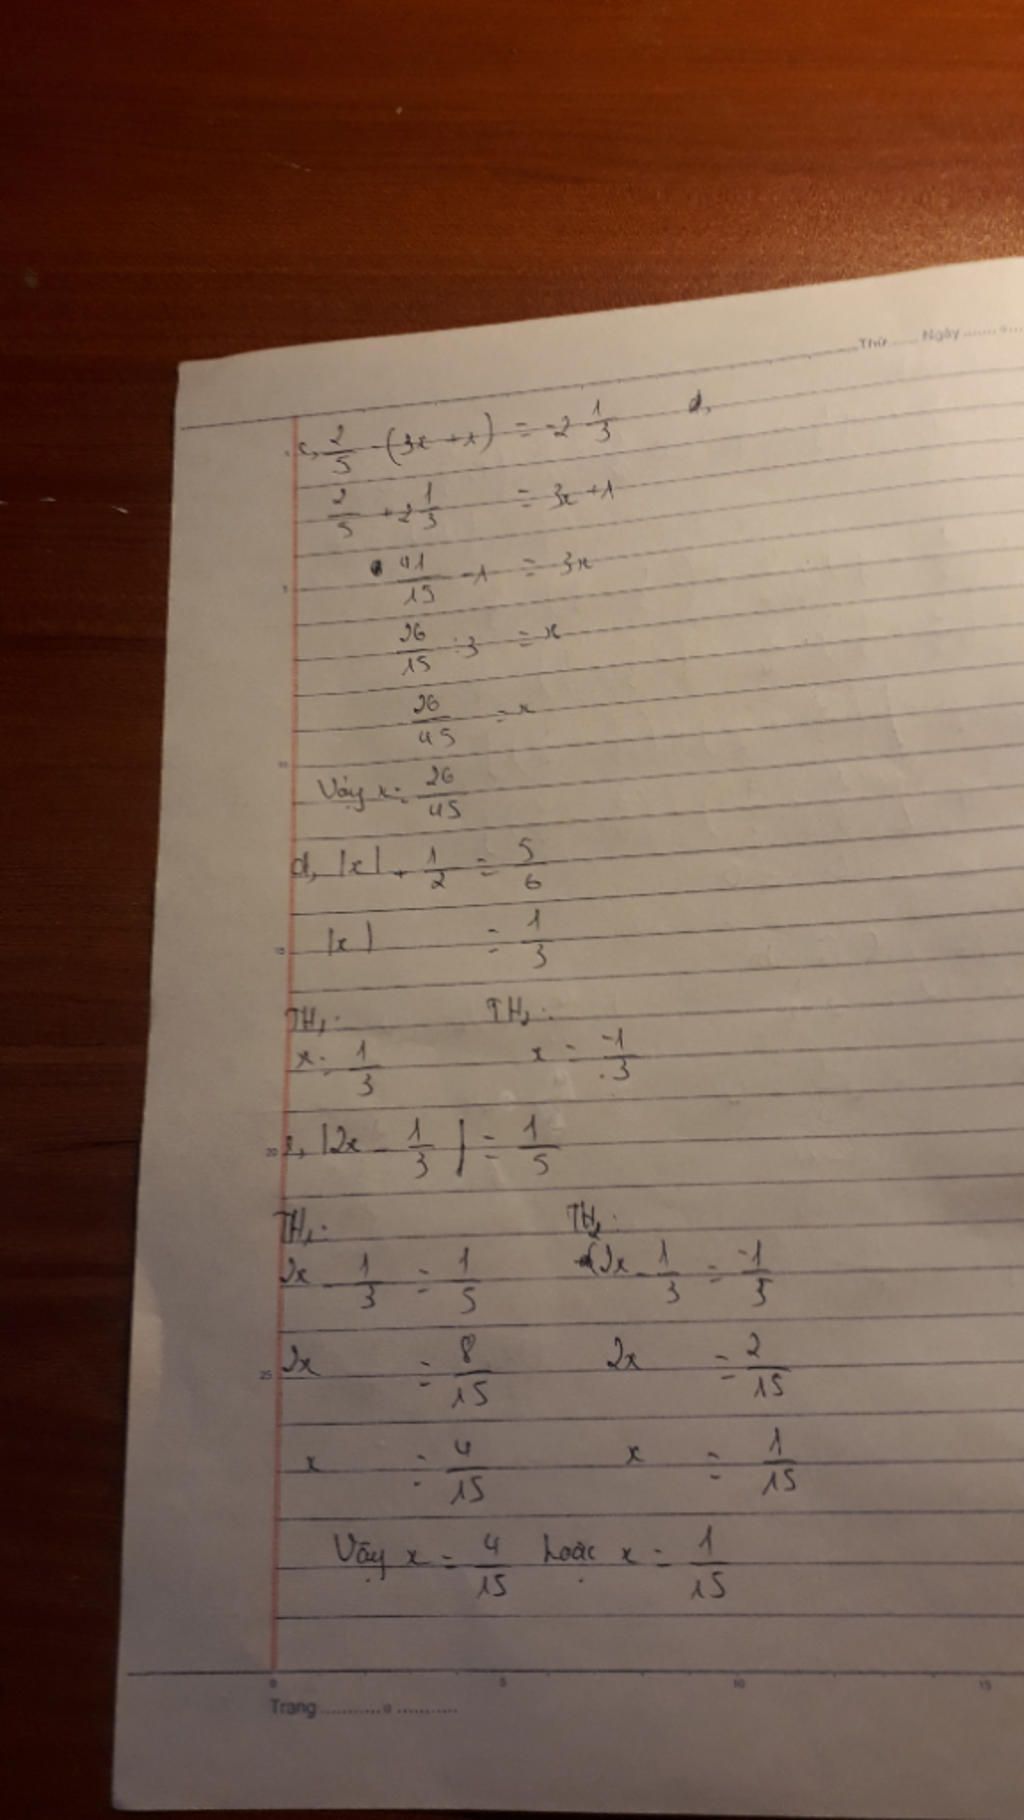 Thứ ...... Ngày ....... 
c, 2/5 - (3x + x) = -2 1/3    d,
2/5 + 2 1/3 = 3x + 1
41/15 - 1 = 3x
26/15 : 3 = x
26/45 = x
Vậy x = 26/45
d, |x| + 1/2 = 5/6
|x| = 1/3
TH₁:    TH₂:
x = 1/3    x = -1/3
|2x - 1/3| = 1/5
TH₁:    TH₂:
2x - 1/3 = 1/5    2x - 1/3 = -1/5
2x = 8/15    2x = 2/15
x = 4/15    x = 1/15
Vậy x = 4/15 hoặc x = 1/15
0 5 10 15
Trang